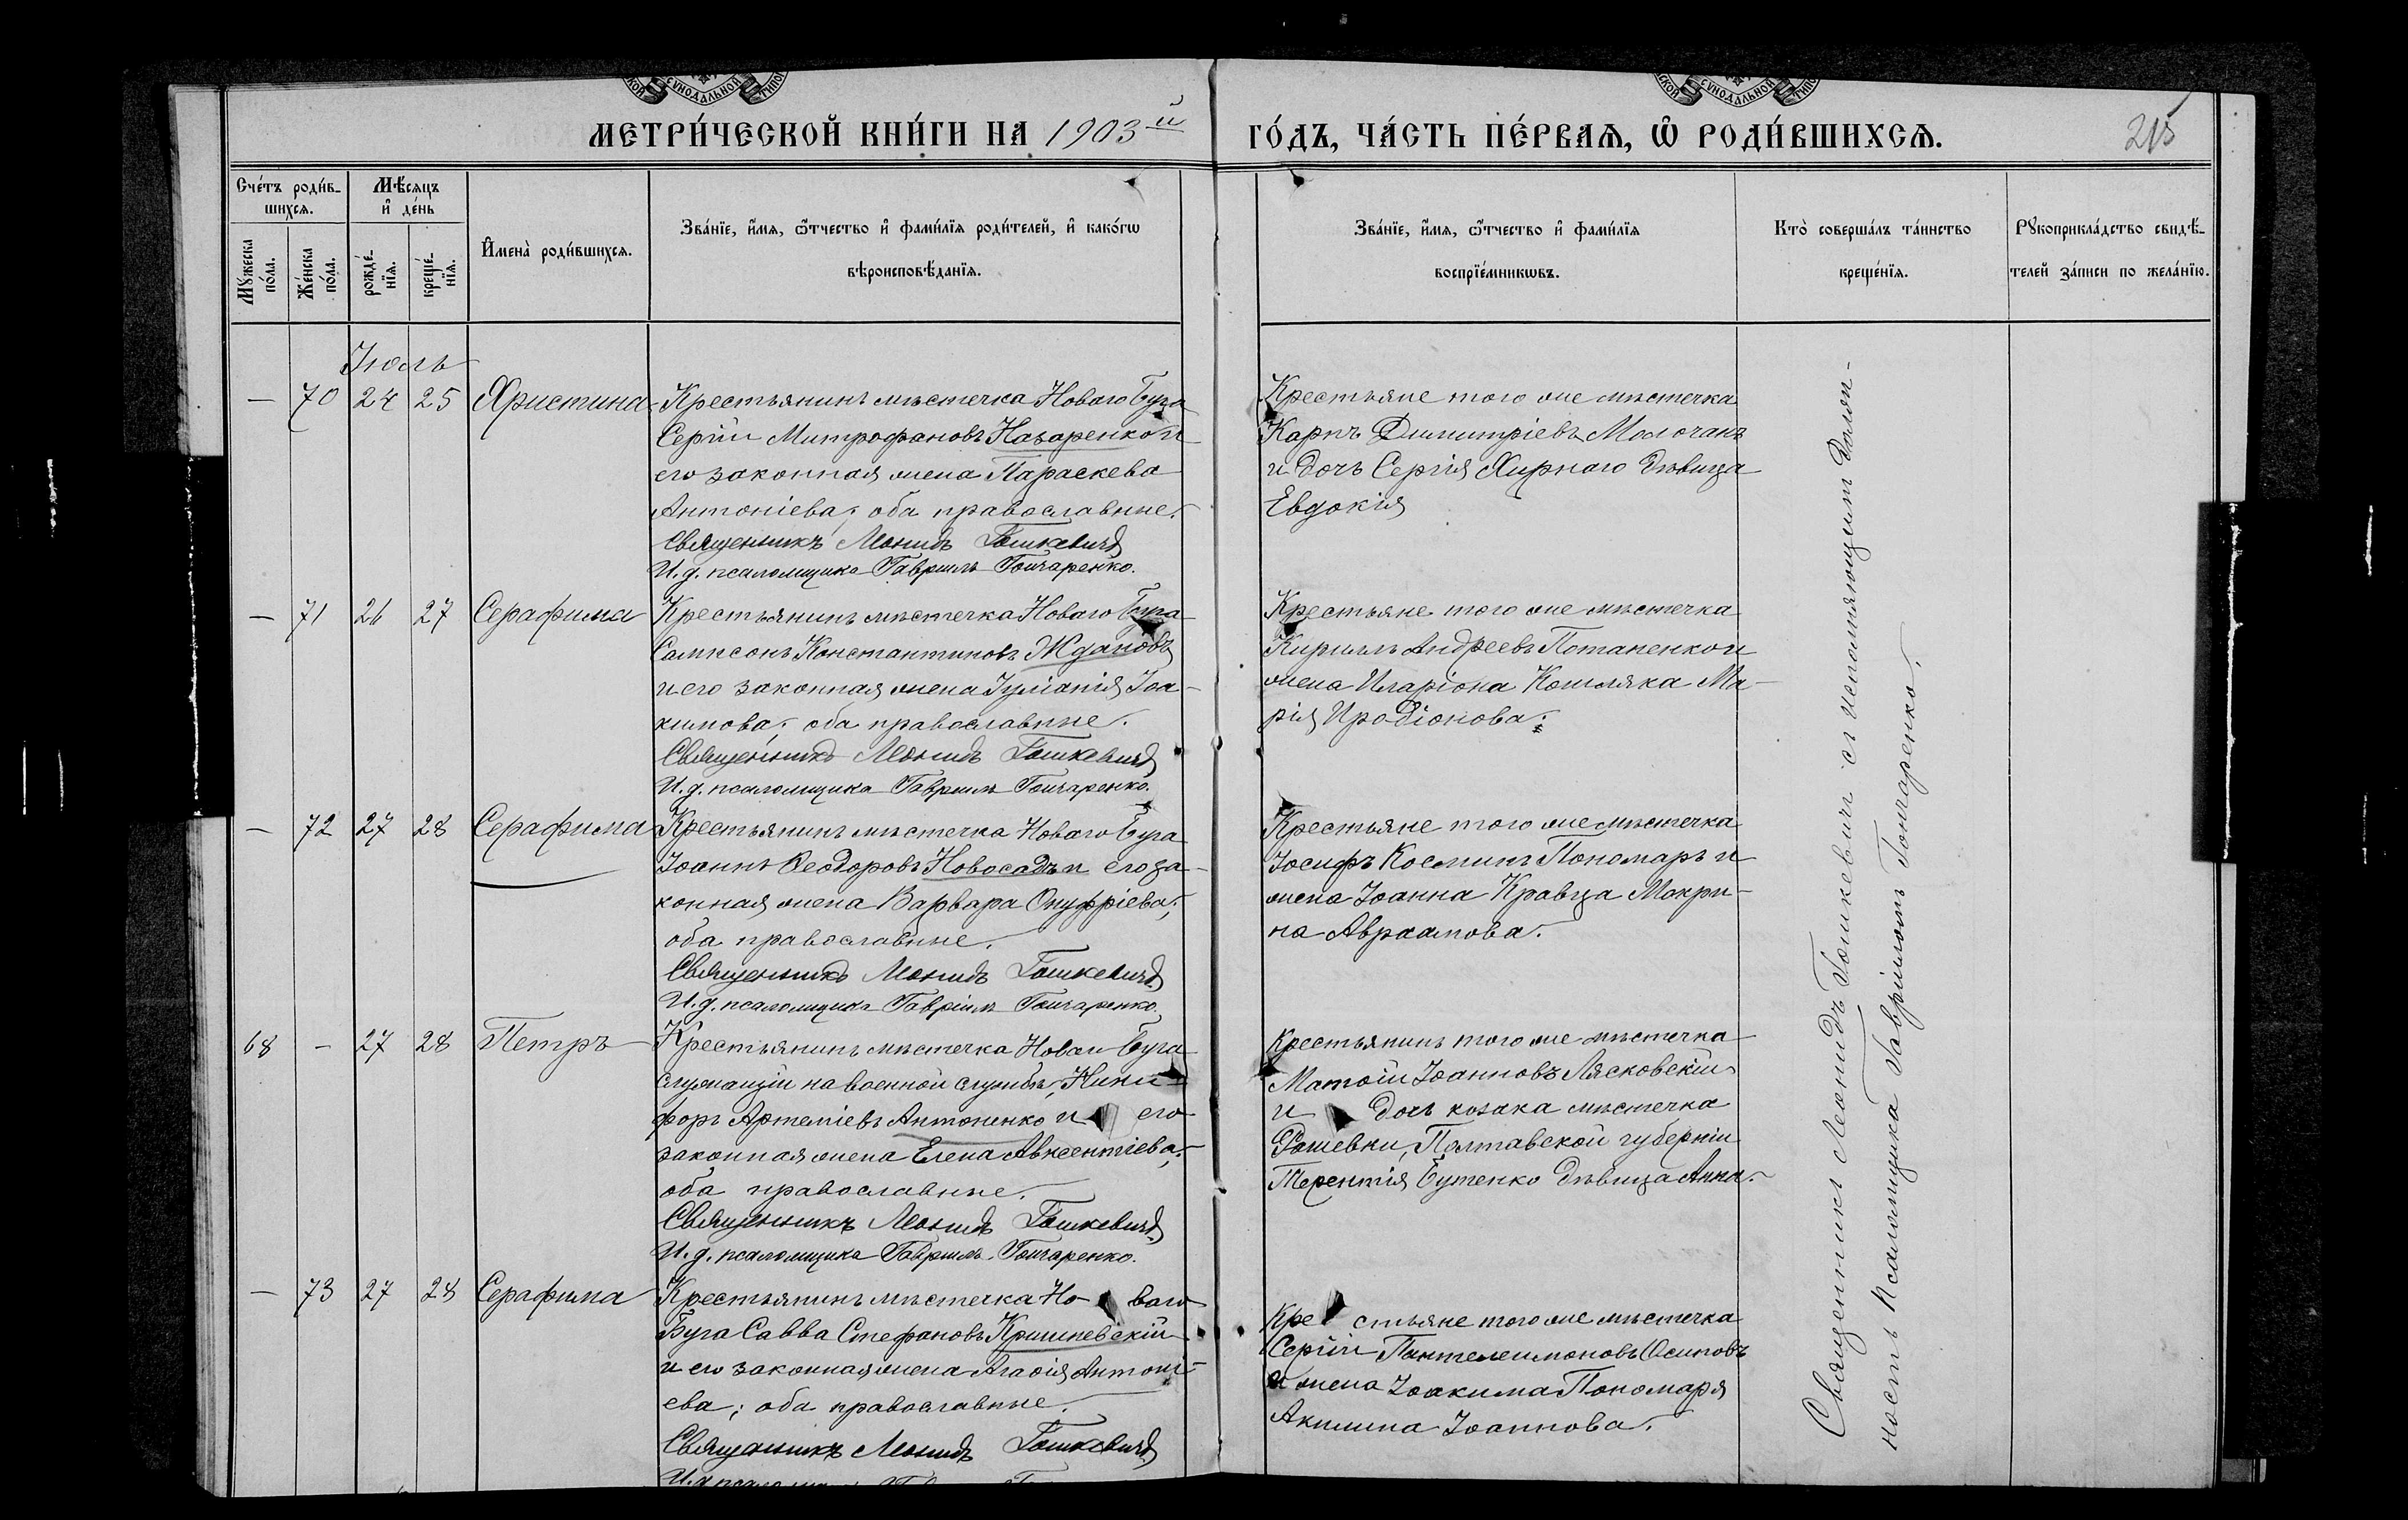 МЕТРИ́ЧЕСКОЙ КНИ́ГИ НА 1903й ГО́ДЪ, ЧА́СТЬ ПЕ́РВАЯ, Ѿ РОДИ́ВШИХСЯ.
215
Сче́тъ роди́в-
шихся.
Мѣ́сяцъ
и҆ де́нь
Мꙋ́жеска
по́ла.
Же́нска
по́ла.
рожде́-
нїѧ.
креще́-
нїѧ.
И҆мена̀ роди́вшихся.
Зва́нїе, и҆́мѧ, ѻ҆́тчество и҆ фами́лїѧ роди́телей, и҆ како́гѡ
вѣроисповѣ́данїѧ.
Зва́нїе, и҆́мѧ, ѻ҆́тчество и҆ фами́лїѧ
воспрїе́мникѡвъ.
Кто̀ соверша́лъ та́инство
креще́нїѧ.
Рꙋкоприкла́дство свидѣ́-
телей за́писи по жела́нїю.
Іюль
— 70 24 25 Христина
Крестьянинъ мѣстечка Новаго Буга
Сергій Митрофановъ Назаренко и
его законная жена Параскева
Антоніева; оба православные.
Священникъ Леонидъ Гошкевичъ
И. д. псаломщика Гавріилъ Гончаренко.
Крестьяне того же мѣстечка
Карпъ Димитріевъ Молочанъ
и дочь Сергія Жирнаго дѣвица
Евдокія
— 71 26 27 Серафима
Крестьянинъ мѣстечка Новаго Буга
Сампсонъ Константиновъ Ждановъ
и его законная жена Іуліанія Іоа-
кимова; оба православные.
Священникъ Леонидъ Гошкевичъ
И. д. псаломщика Гавріилъ Гончаренко.
Крестьяне того же мѣстечка
Кириллъ Андреевъ Потапенко и
жена Иларіона Кошляка Ма-
рія Иродіонова.
— 72 27 28 Серафима
Крестьянинъ мѣстечка Новаго Буга
Іоаннъ Ѳеодоровъ Новосадъ и его за-
конная жена Варвара Онуфріева;
оба православные.
Священникъ Леонидъ Гошкевичъ
И. д. псаломщика Гавріилъ Гончаренко.
Крестьяне того же мѣстечка
Іосифъ Косминъ Пономарь и
жена Іоанна Кравца Макри-
на Авраамова.
68 — 27 28 Петръ
Крестьянинъ мѣстечка Новаго Буга
служащій на военной службѣ, Ники-
форъ Артеміевъ Антоненко и его
законная жена Елена Авксентіева;
оба православные.
Священникъ Леонидъ Гошкевичъ
И. д. псаломщика Гавріилъ Гончаренко.
Крестьянинъ того же мѣстечка
Матѳій Іоанновъ Лясковскій
и дочь козака мѣстечка
Рашевки, Полтавской губерніи
Терентія Бутенко дѣвица Анна.
— 73 27 28 Серафима
Крестьянинъ мѣстечка Но- ваго
Буга Савва Стефановъ Кришневскій
и его законная жена Агаѳія Антоні-
ева; оба православные.
Священникъ Леонидъ Гошкевичъ
Кре стьяне того же мѣстечка
Сергій Пантелеимоновъ Осиповъ
и жена Іоакима Пономаря
Акилина Іоаннова.
Священникъ Леонидъ Гошкевичъ съ исполняющимъ долж-
ность псаломщика Гавріиломъ Гончаренко.